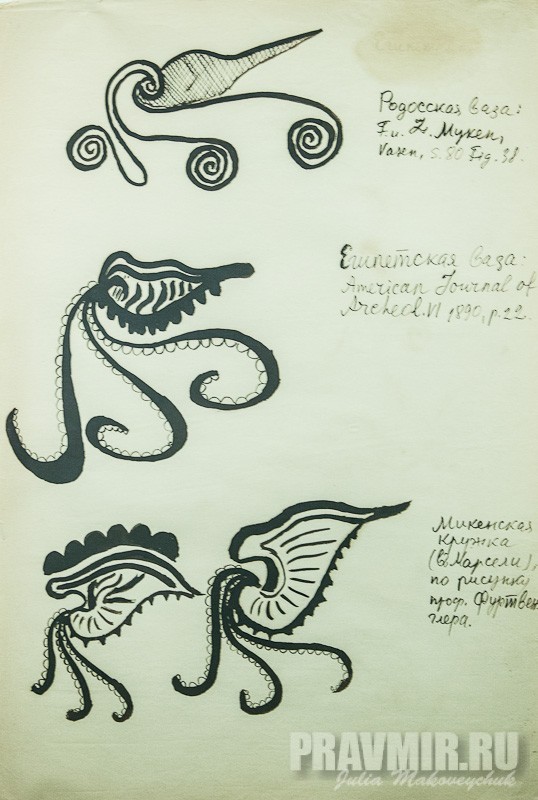 Родосская ваза:
F. u. L. Мукен,
Vasen, S. 80 Fig. 38.
Египетская ваза:
American Journal of
Archeol. VI 1890, p. 22.
Микенская
кружка
(в Марсели),
по рисунку
проф. Фуртвен
глера.
PRAVMIR.RU
Julia Makoveychuk